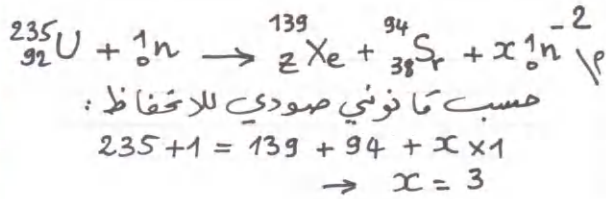 2- ²³⁵₉₂U + ¹₀n → ¹³⁹_ZXe + ⁹⁴₃₈Sr + x ¹₀n
حسب قانوني صودي للانحفاظ :
235+1 = 139 + 94 + x×1
→ x = 3